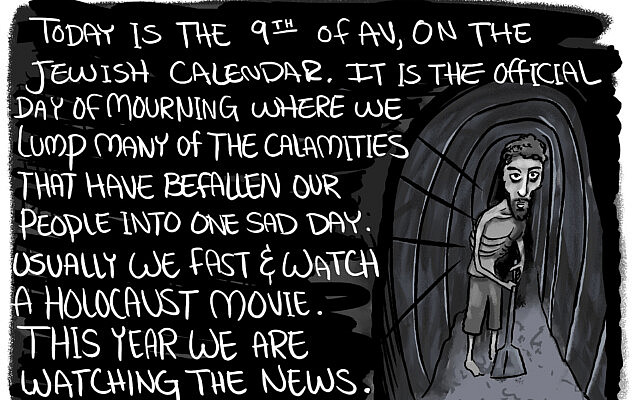 TODAY IS THE 9TH of AV, ON THE
JEWISH CALENDAR. IT IS THE OffICIAL
DAY Of MOURNING WHERE WE
LUMP MANY Of THE CALAMITIES
THAT HAVE BEFALLEN OUR
PEOPLE INTO ONE SAD DAY.
USUALLY WE fAST & WATCH
A HOLOCAUST MOVIE.
THIS YEAR WE ARE
WATCHING THE NEWS.